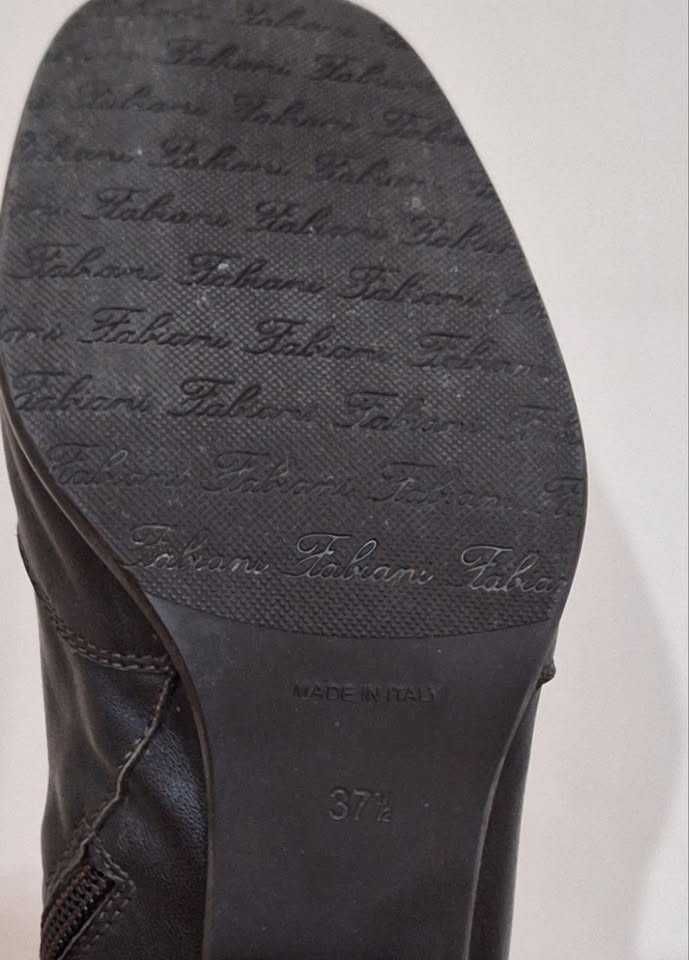 Fabiani
Fabiani Fabiani
Fabiani Fabiani
Fabiani Fabiani
Fabiani Fabiani Fabiani
Fabiani Fabiani Fabiani
Fabiani Fabiani Fabiani
Fabiani Fabiani Fabiani
Fabiani Fabiani Fabiani
Fabiani Fabiani Fabiani
MADE IN ITALY
37½